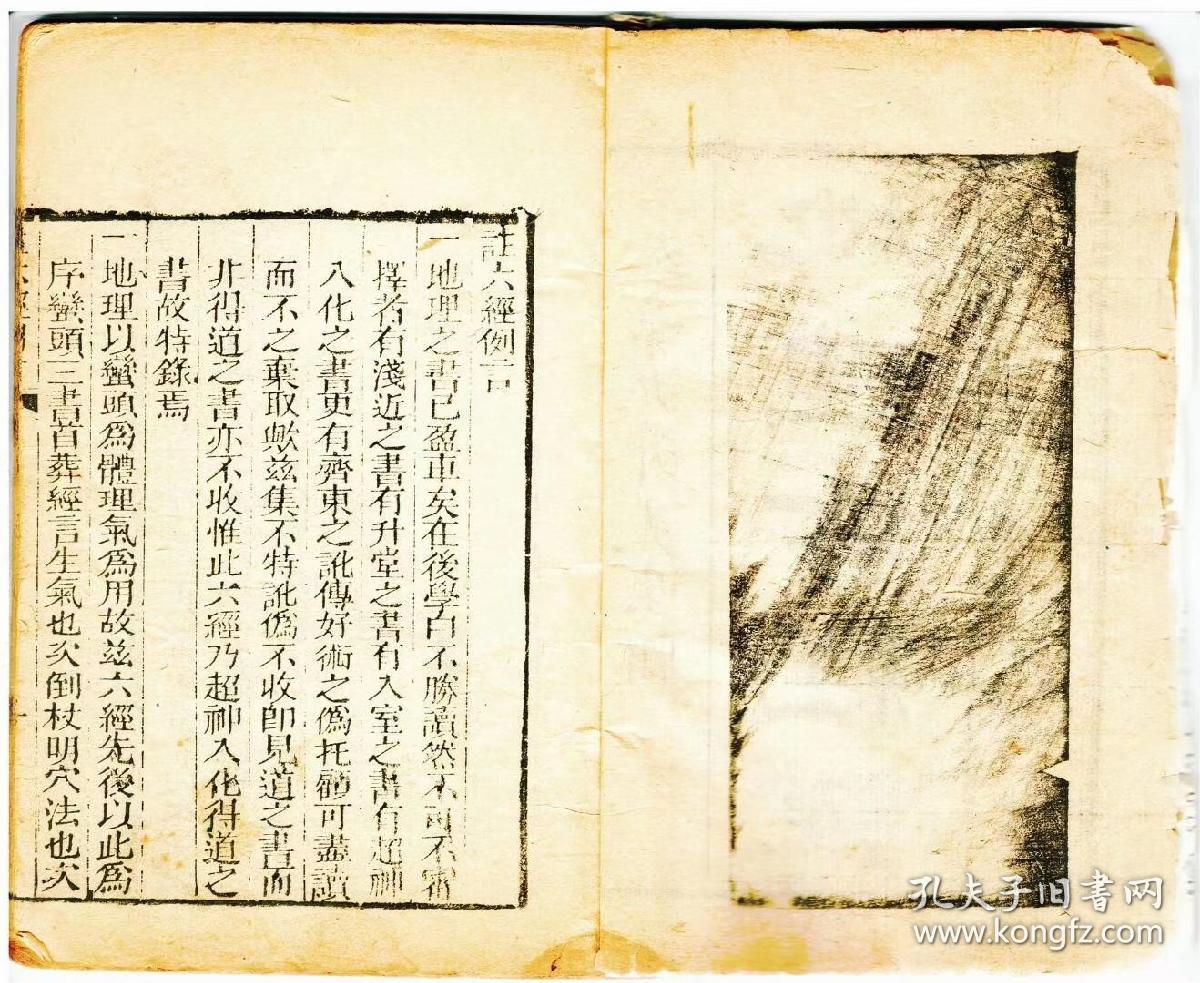 註六經例言
一地理之書已盈車矣在後學白不勝讀然不可不審
擇者有淺近之書有升堂之書有入室之書有超神
入化之書更有齊東之訛傳好術之偽托顧可盡讀
而不之棄取歟茲集不特訛偽不收即見道之書而
非得道之書亦不收惟此六經乃超神入化得道之
書故特錄焉
一地理以巒頭為體理氣為用故茲六經先後以此為
序巒頭三書首葬經言生氣也次倒杖明穴法也次
孔夫子旧书网
www.kongfz.com